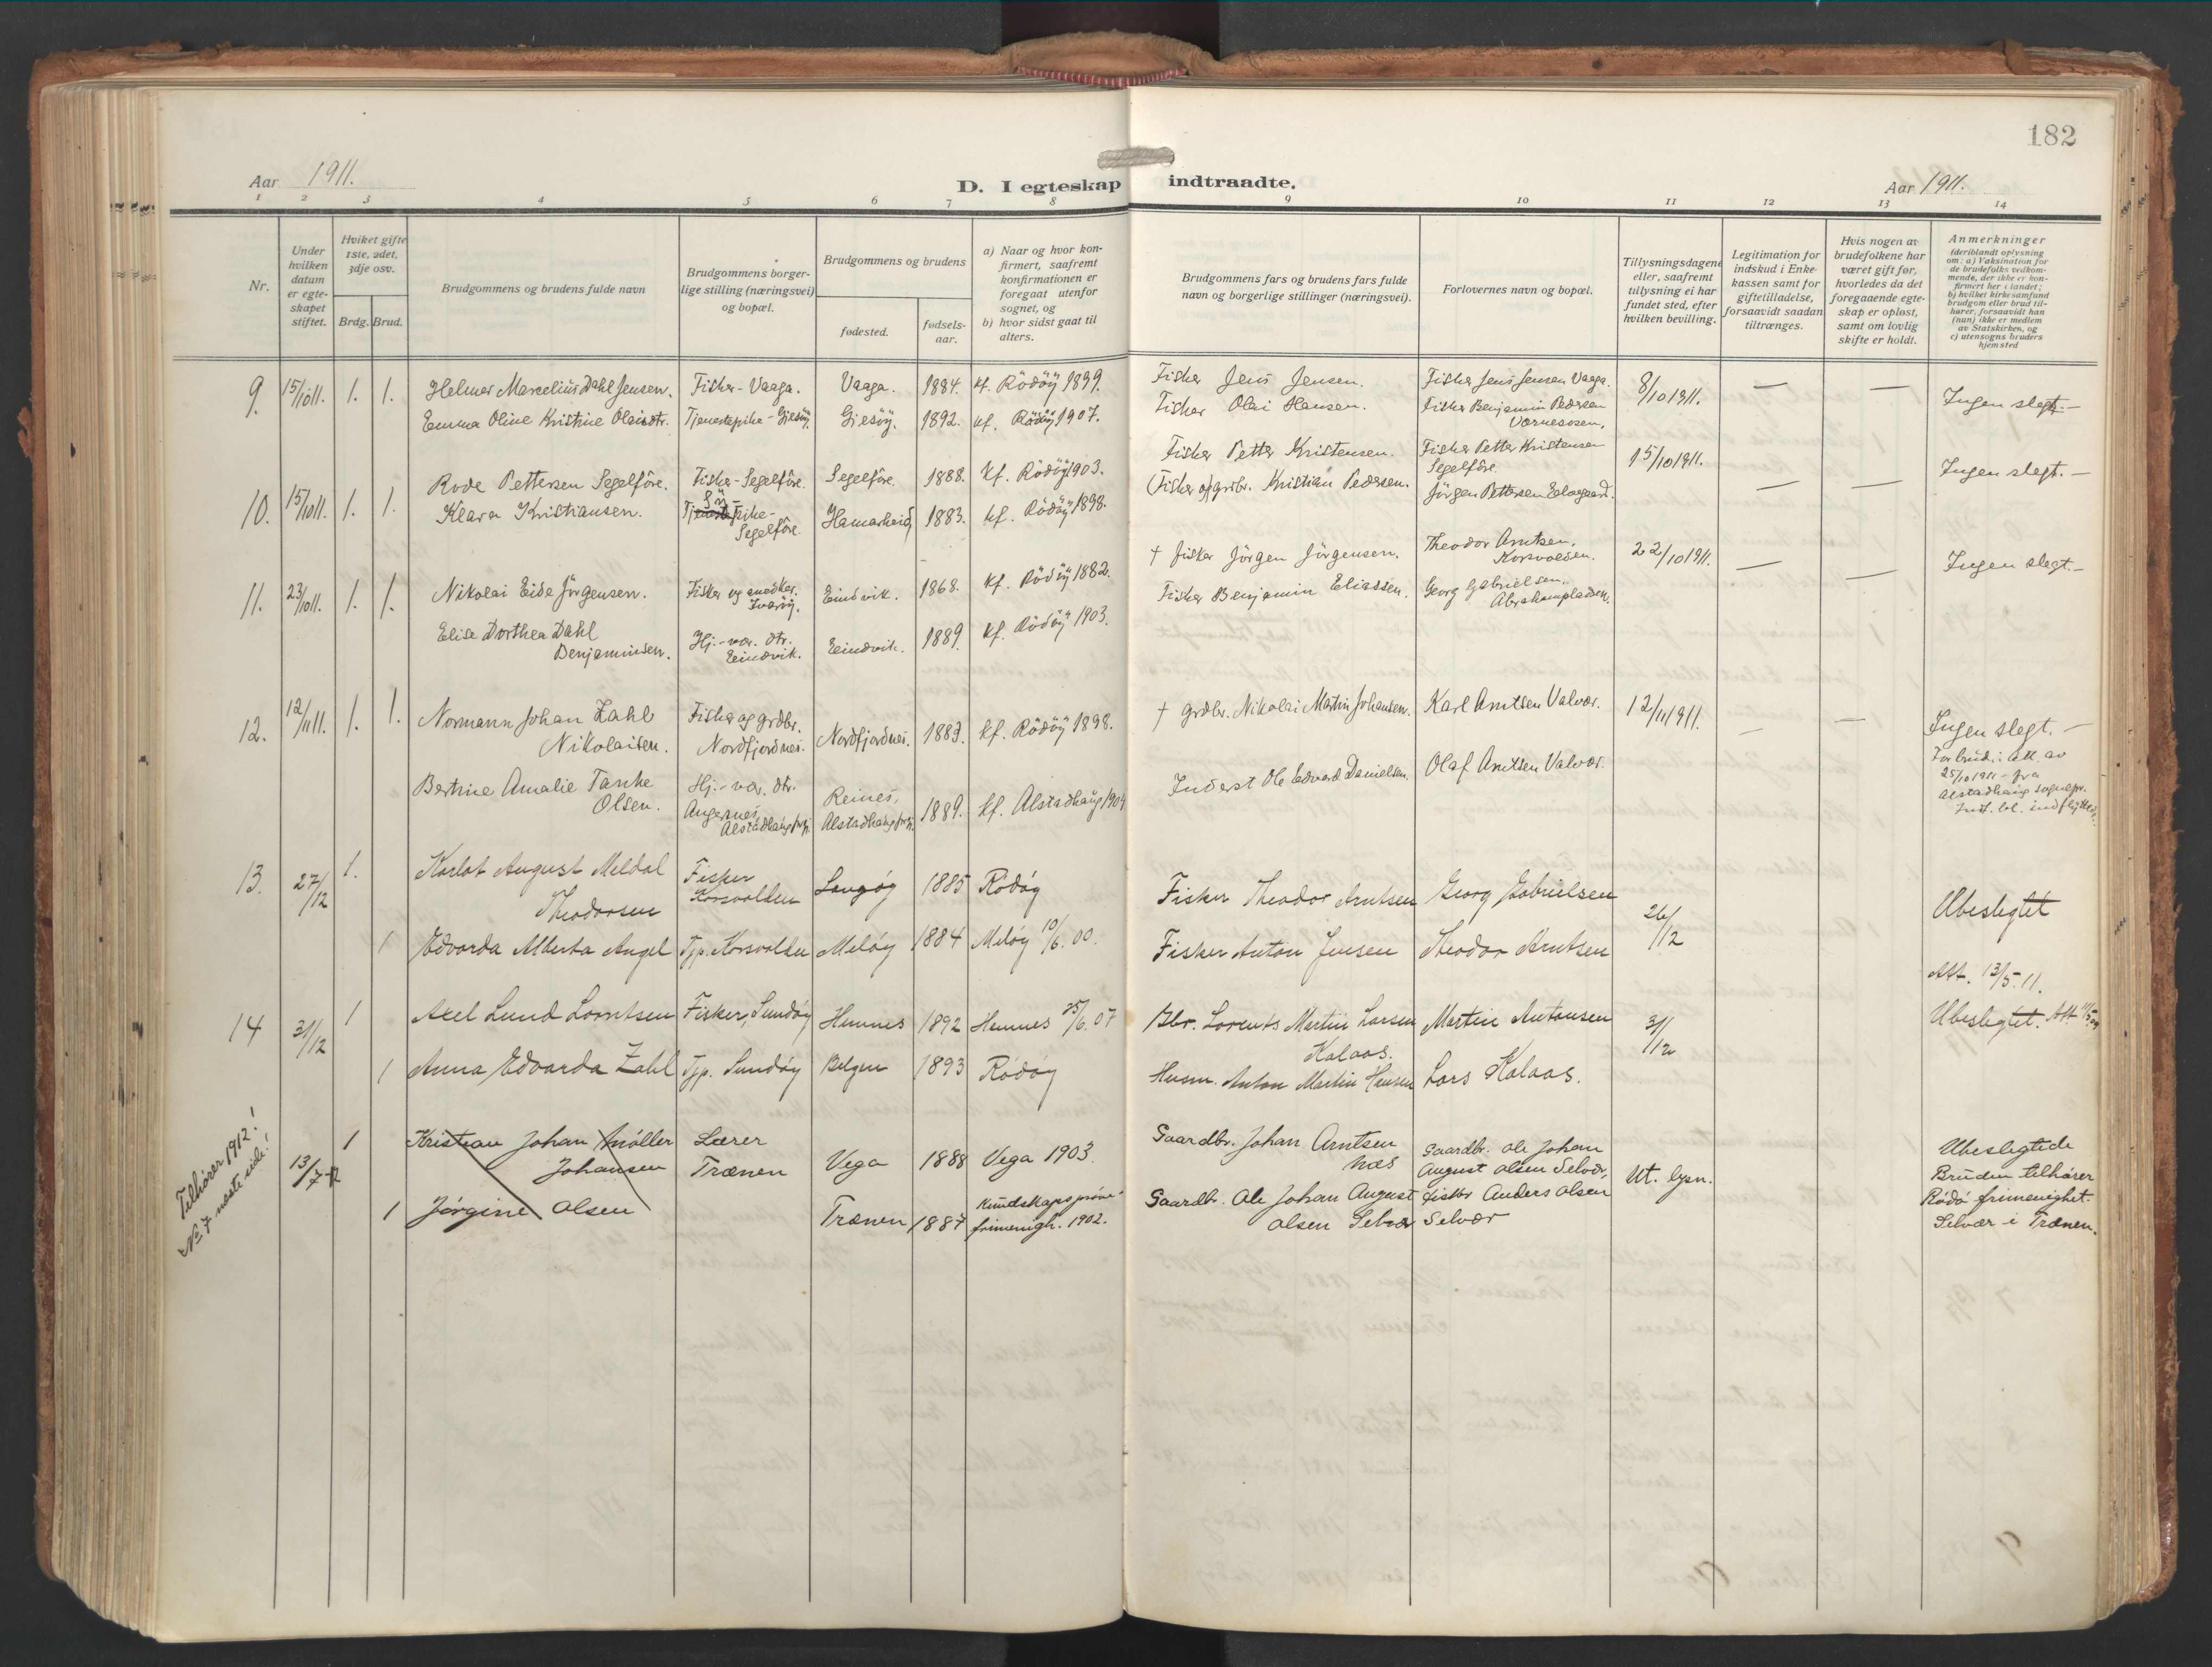 182
Aar 1911.
D. I egteskap indtraadte.
Aar 1911.
1 2 3 4 5 6 7 8 9 10 11 12 13 14
Nr.
Under hvilken datum er egteskapet stiftet.
Hviket gifte 1ste, 2det, 3dje osv.
Brdg. Brud.
Brudgommens og brudens fulde navn
Brudgommens borgerlige stilling (næringsvei) og bopæl.
Brudgommens og brudens
fødested.
fødselsaar.
a) Naar og hvor konfirmert, saafremt konfirmationen er foregaat utenfor sognet, og
b) hvor sidst gaat til alters.
Brudgommens fars og brudens fars fulde navn og borgerlige stillinger (næringsvei).
Forlovernes navn og bopæl.
Tillysningsdagene eller, saafremt tillysning ei har fundet sted, efter hvilken bevilling.
Legitimation for indskud i Enkekassen samt for giftetilladelse, forsaavidt saadan tiltrænges.
Hvis nogen av brudefolkene har været gift før, hvorledes da det foregaaende egteskap er opløst, samt om lovlig skifte er holdt.
Anmerkninger (deriblandt oplysning om: a) Vaksination for de brudefolks vedkommende, der ikke er konfirmert her i landet; b) hvilket kirkesamfund brudgom eller brud tilhører, forsaavidt han (hun) ikke er medlem av Statskirken, og c) utensogns bruders hjemsted
9. 15/10 11. 1. 1. Helmer Marcelius Dahl Jensen. Fisker - Vaaga. Vaaga. 1884. kf. Rödöy 1899. Fisker Jens Jensen. Fisker Jens Jensen Vaaga. 8/10 1911. — — Ingen slegt. —
Emma Oline Kristine Olaisdtr. Tjenestepike - Gjesöy. Gjesöy. 1892. kf. Rödöy 1907. Fisker Olai Hansen. Fisker Benjamin Pedersen
Værnesosen.
10. 15/10 11. 1. 1. Rode Pettersen Segelföre. Fisker - Segelföre. Segelföre. 1888. kf. Rödöy 1903. Fisker Petter Kristensen. Fisker Petter Kristensen
Segelföre. 15/10 1911. — — Ingen slegt. —
Klara Kristiansen. Tjenestepike -
Segelföre. Hamarheid 1883. kf. Rödöy 1898. Fisker og grdbr. Kristian Pedersen. Jörgen Pettersen
11. 23/10 11. 1. 1. Nikolai Eide Jörgensen. Fisker og snedker. Eindvik. 1868. kf. Rödöy 1882. † fisker Jörgen Jörgensen. Theodor Arntsen.
Korsvolden. 22/10 1911. — — Ingen slegt. —
Elise Dorthea Dahl
Benjaminsen. Hj.-vær. dtr.
Eindvik. Eindvik. 1889. kf. Rödöy 1903. Fisker Benjamin Eliassen. Georg Gabrielsen.
Abrahampladsen.
12. 12/11 11. 1. 1. Normann Johan Zahl
Nikolaisen. Fisker og grdbr.
Nordfjordnes. Nordfjordnes. 1883. kf. Rödöy 1898. † grdbr. Nikolai Martin Johansen. Karl Arntsen Valvær. 12/11 1911. — — Ingen slegt. —
For brud: att. av
25/10 1911 - fra
Alstadhaug sognepr.
Bertine Amalie Tanke
Olsen. Hj.-vær. dtr.
Angersnes,
Alstadhaug Reines,
Alstadhaug 1889. kf. Alstadhaug 1904 Inderst Ole Edvard Danielsen. Olaf Arntsen Valvær.
13. 27/12 1. Karlot August Meldal
Theodorsen Fisker
Korsvolden Langöy 1885 Rödöy Fisker Theodor Arntsen Georg Gabrielsen 26/12 Ubeslegtet
1 Edvarda Alberta Angel Tjp. Korsvolden Melöy 1884 Melöy 10/6. 00. Fisker Anton Jensen Theodor Arntsen
Att. 13/5. 11.
14 31/12 1 Axel Lund Lorntsen Fisker, Sundöy Hemnes 1892 Hemnes 25/6. 07 Lorents Martin Larsen
Kalaas. Martin Antonsen 31/12 Ubeslegtet. Att
1 Anna Edvarda Zahl Tjp. Sundöy 1893 Rödöy Husm. Anton Martin Hansen Lars Kalaas.
Tilhører 1912!
No. 7 næste side!
13/7-12 1 Kristian Johan Møller
Johansen Lærer
Trænen Vega 1888 Vega 1903. Gaardbr. Johan Arntsen
Næs Gaardbr. Ole Johan
August Olsen Selvær. Ut. lysn. Ubeslegtede
Bruden tilhører
Rödö frimenighet.
Selvær i Trænen.
1 Jörgine Olsen Trænen 1887 Kundskapsprøve
frimenigh. 1902. Gaardbr. Ole Johan August
Olsen Selvær Fiskbr Anders Olsen
Selvær